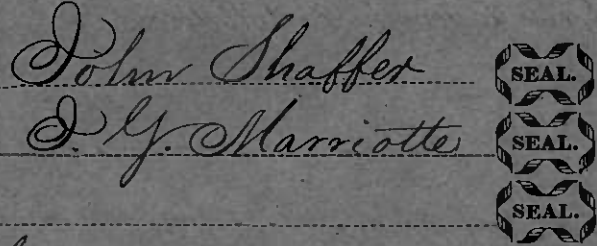 John Shaffer SEAL.
I. G. Marriotte SEAL.
SEAL.